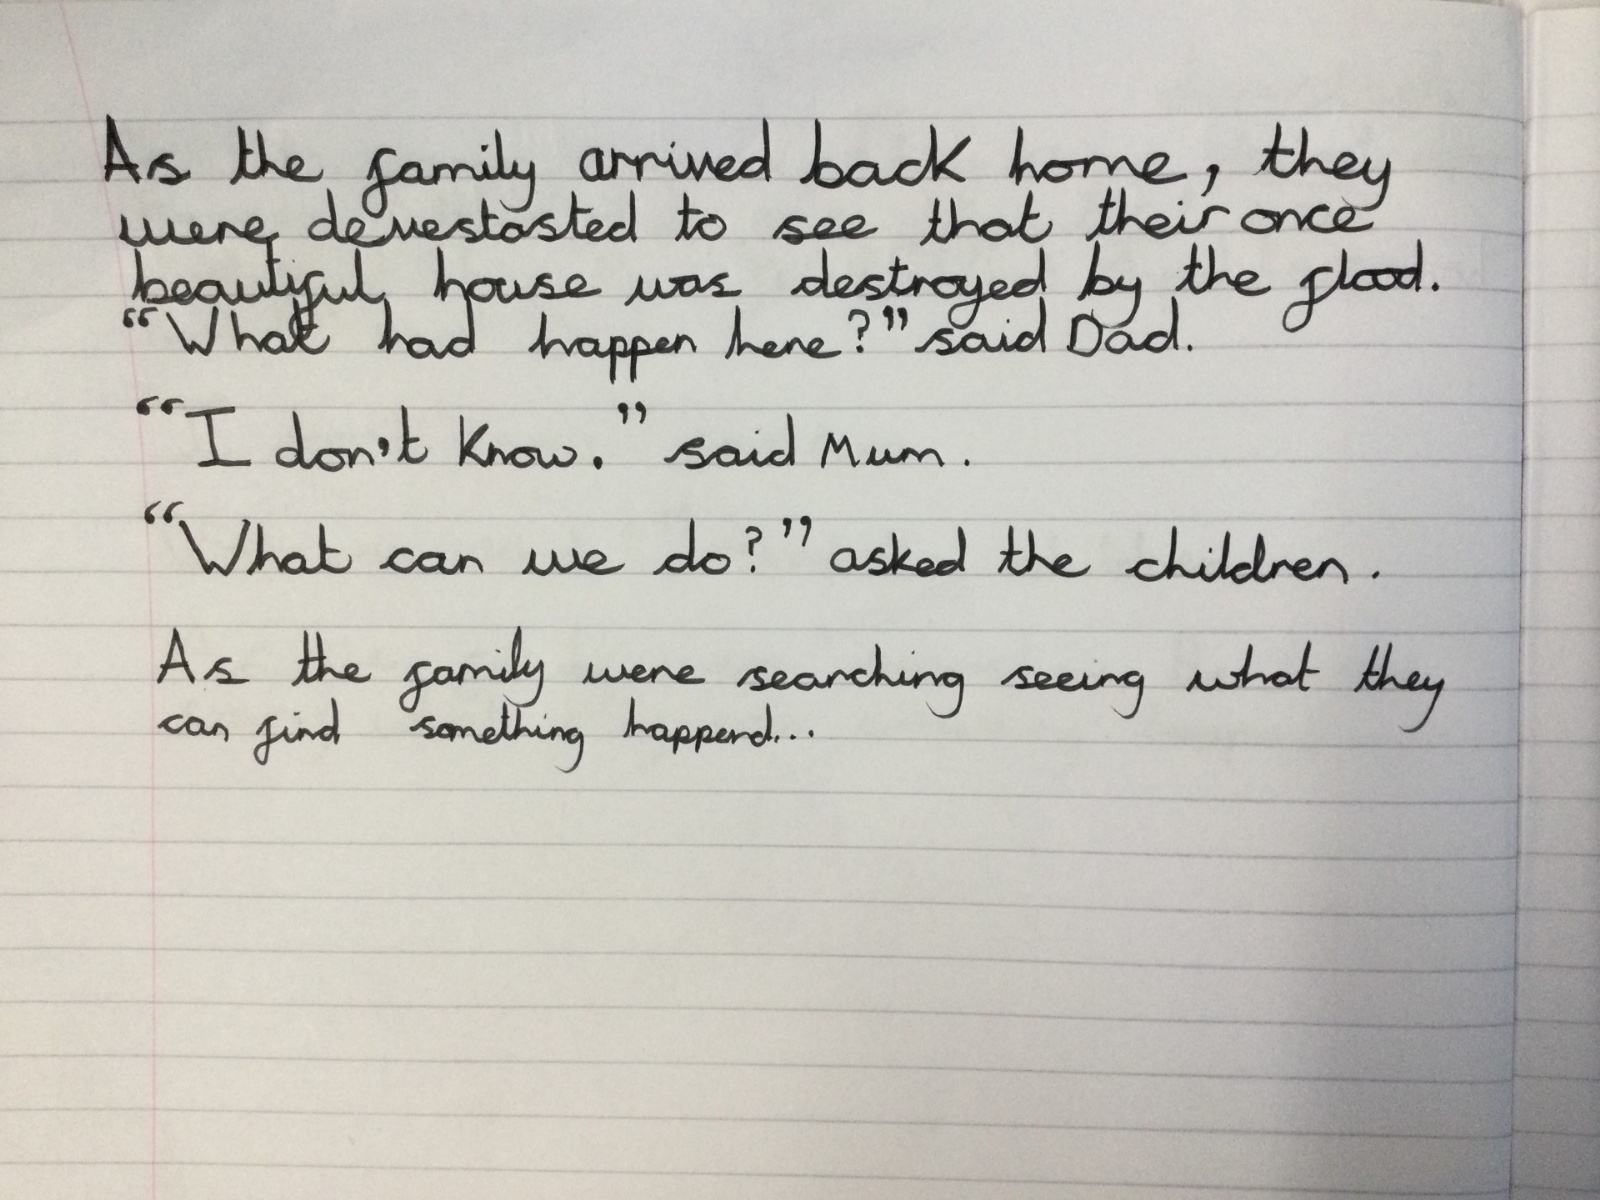 As the family arrived back home, they
were devestasted to see that their once
beautiful house was destroyed by the flood.
“What had happen here?” said Dad.
“I don't know.” said Mum.
“What can we do?” asked the children.
As the family were searching seeing what they
can find something happend...